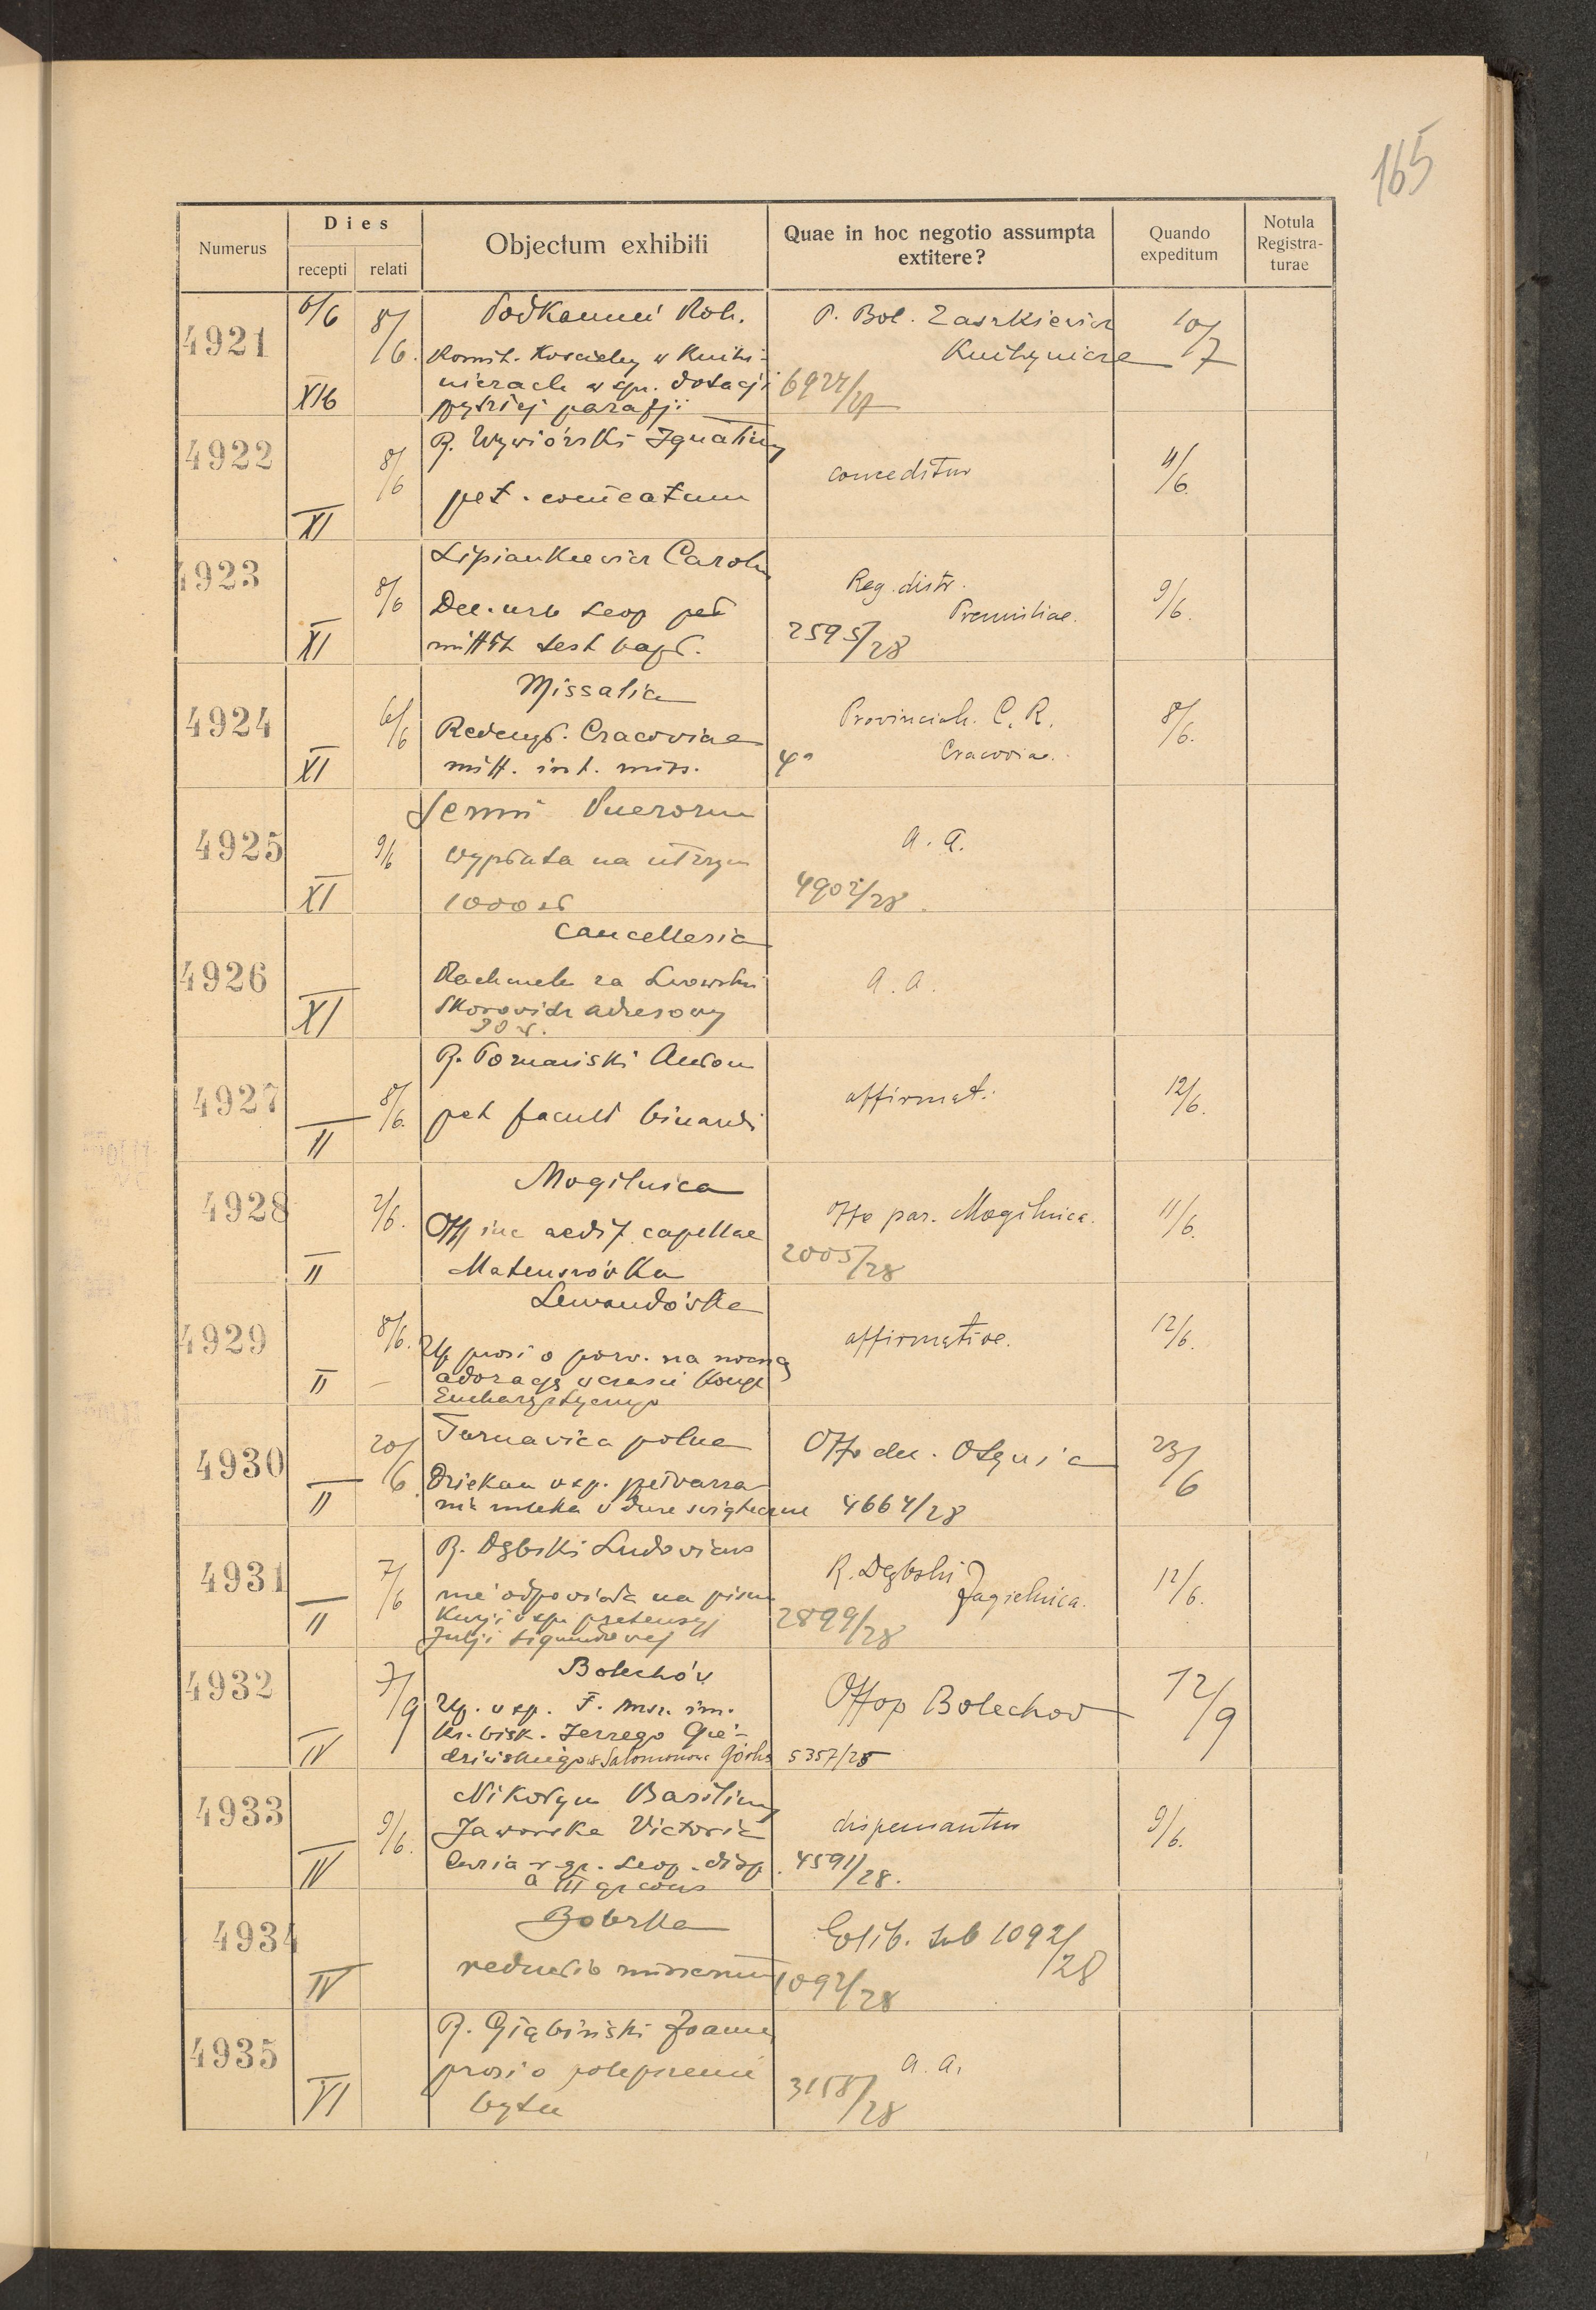 165
Numerus
Dies
recepti relati
Objectum exhibiti
Quae in hoc negotio assumpta extitere?
Quando expeditum
Notula Registra-turae
4921 6/6 8/6. Podkamień Roh. P. Bol. Zaszkiewicz 10/7
Komit. Kościelny w Knihy- Knihynicze
XIb niczach w spr. dotacji 6924/27
parafji
4922 8/6 R. Wywiórski Ignatius conceditur 11/6.
XI pet. comeatum
4923 8/6 Lipiankiewicz Carolus Reg. distr. 9/6.
Dec. urb Leop pet Premisliae.
XI test bapt. 2595/28
4924 6/6 Missalia Provincial. C. R. 8/6.
Redempt. Cracoviae Cracoviae.
XI mitt. int. miss. 4°
4925 9/6 Semin Puerorum a. a.
Wypłata na utrzym
XI 1000 zł 4902/28
4926 Cancellaria
Rachunek za Lwowski a. a.
XI Skorowidz adresowy
4927 8/6. R. Poznański Anton affirmat. 12/6.
II pet facult binandi
4928 7/6. Mogilnica Offo par. Mogilnica. 11/6.
Off in c aedif capellae
II Mateuszówka 2005/28
4929 8/6. Lewandówka affirmative. 12/6.
prosi o pozw. na nocną
II adorację w czasie Kongr
Eucharystycznego
4930 20/6 Tarnawica polna Offo dec. 23/6
Dziekan w sp. przetwarza
II nia mleka w dnie świąteczne 4664/28
4931 7/6 R. Dębski Ludovicus R. Dębski Jagielnica. 12/6.
nie odpowiada na pisma
II Kurji w spr pretensyj 2899/28
Julji
4932 7/9 Bolechów Offop Bolechow 12/9
w sp. F. msz. im.
ks. bisk. Jerzego Gie-
IV w Salomonowa Górka 5357/25
4933 9/6. Nikołyn Basilius dispensantur 9/6.
Jaworska Victoria
IV Curia r. gr. Leop. disp. 4591/28.
a III gr cons
4934 Bóbrka sub 1092/28
IV reductio missarum 1092/28
4935 R. Głąbiński Joannes a. a.
prosi o polepszenie 3158/28
VI bytu